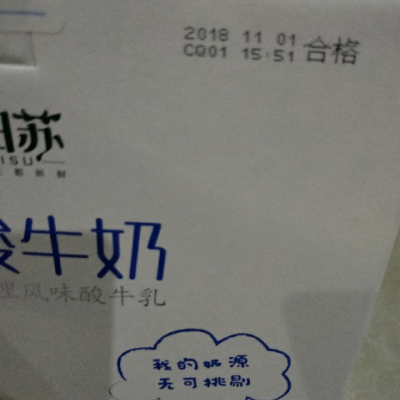 2018 11 01
CQ01 15:51 合格
苏
ISU
酸牛奶
理风味酸牛乳
我的奶源
无可挑剔